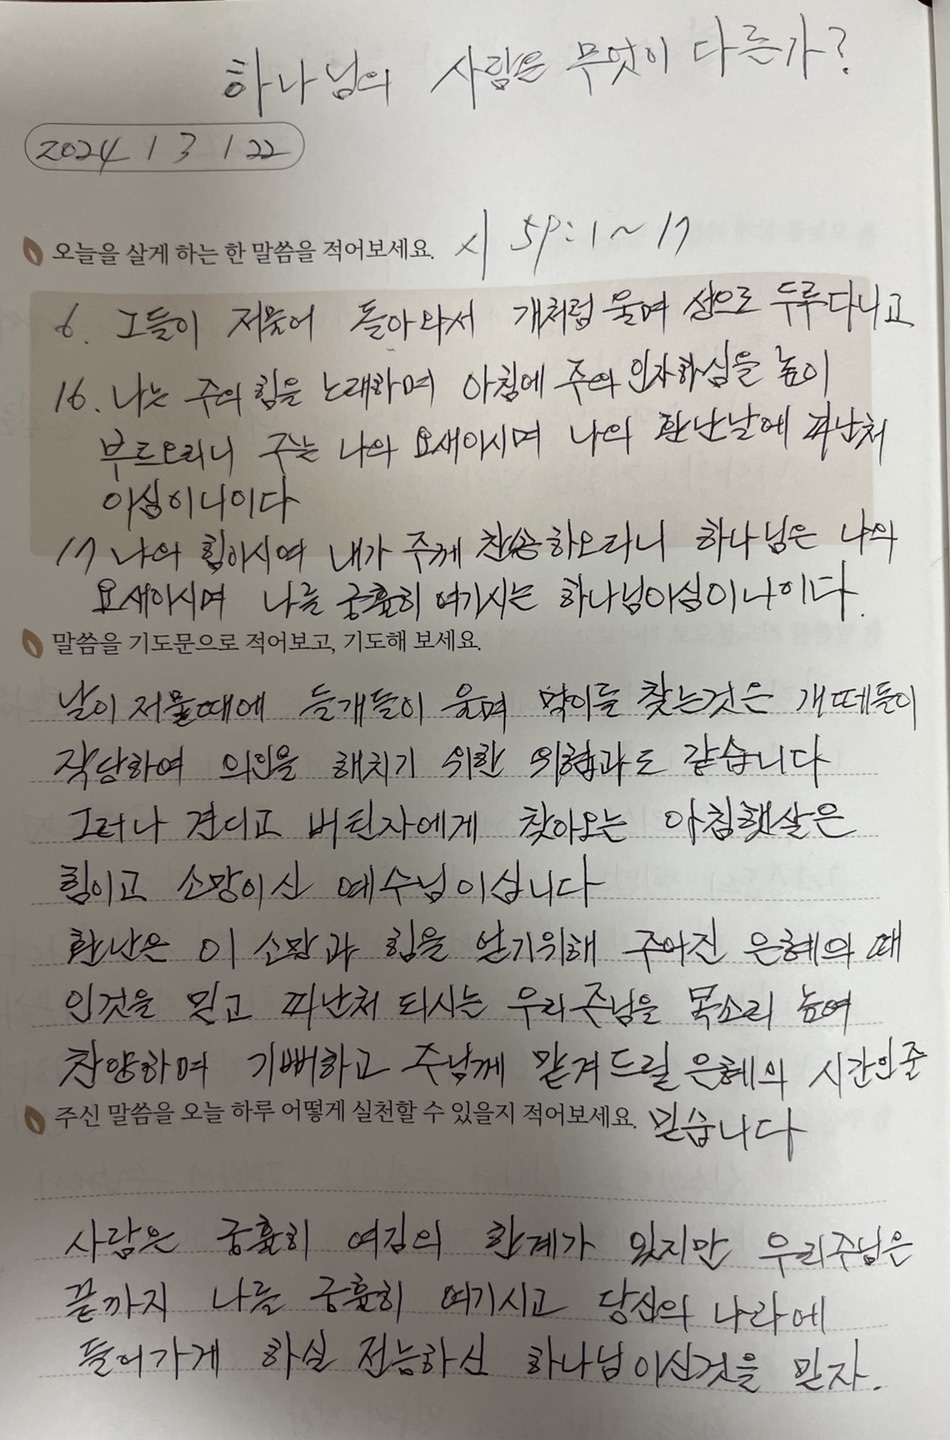 하나님의 사람은 무엇이 다른가?
2024 / 3 / 22
오늘을 살게 하는 한 말씀을 적어보세요. 시 59:1~17
6. 그들이 저물어 돌아와서 개처럼 울며 성으로 두루다니고
16. 나는 주의 힘을 노래하며 아침에 주의 인자하심을 높이
부르오리니 주는 나의 요새이시며 나의 환난날에 피난처
이심이니이다
17 나의 힘이시여 내가 주께 찬송하오리니 하나님은 나의
요새이시며 나를 긍휼히 여기시는 하나님이심이니이다.
말씀을 기도문으로 적어보고, 기도해 보세요.
날이 저물때에 들개들이 울며 먹이를 찾는것은 개떼들이
작당하여 의인을 해치기 위한 위협과도 같습니다
그러나 견디고 버틴자에게 찾아오는 아침햇살은
힘이고 소망이신 예수님이십니다
환난은 이 소망과 힘을 얻기위해 주어진 은혜의 때
인것을 믿고 피난처 되시는 우리주님을 목소리 높여
찬양하며 기뻐하고 주님께 맡겨드릴 은혜의 시간인줄
주신 말씀을 오늘 하루 어떻게 실천할 수 있을지 적어보세요. 믿습니다
사람은 긍휼히 여김의 한계가 있지만 우리주님은
끝까지 나를 긍휼히 여기시고 당신의 나라에
들어가게 하실 전능하신 하나님이신것을 믿자.